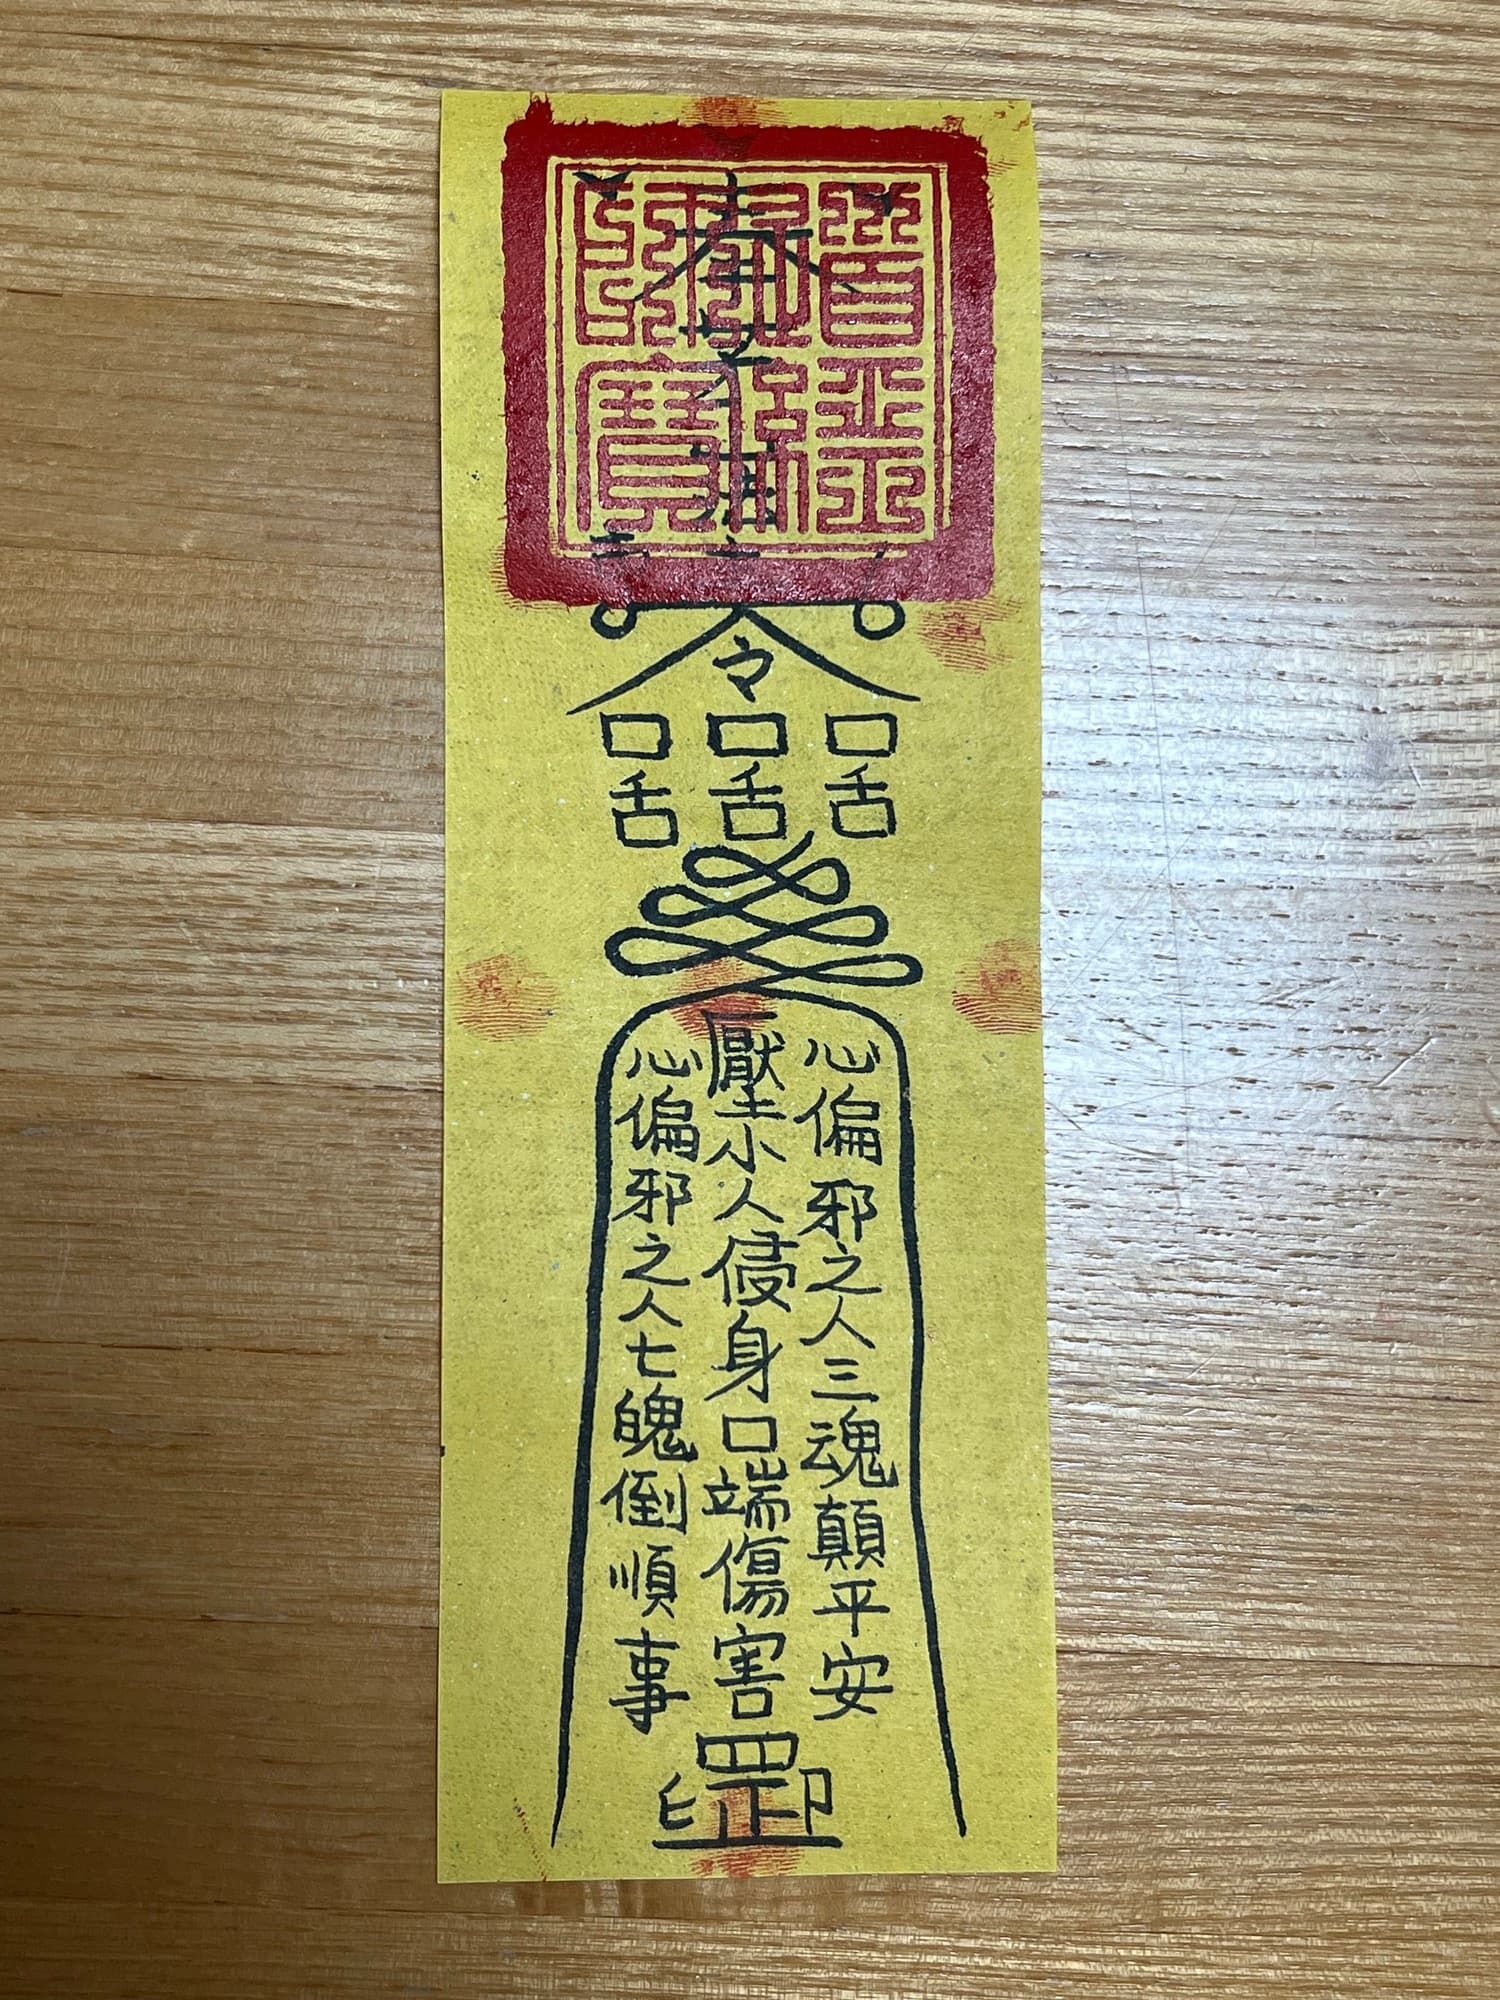 奉
令
口舌
口舌
口舌
心偏邪之人三魂顛平安
壓小人侵身口端傷害
心偏邪之人七魄倒順事
罡印